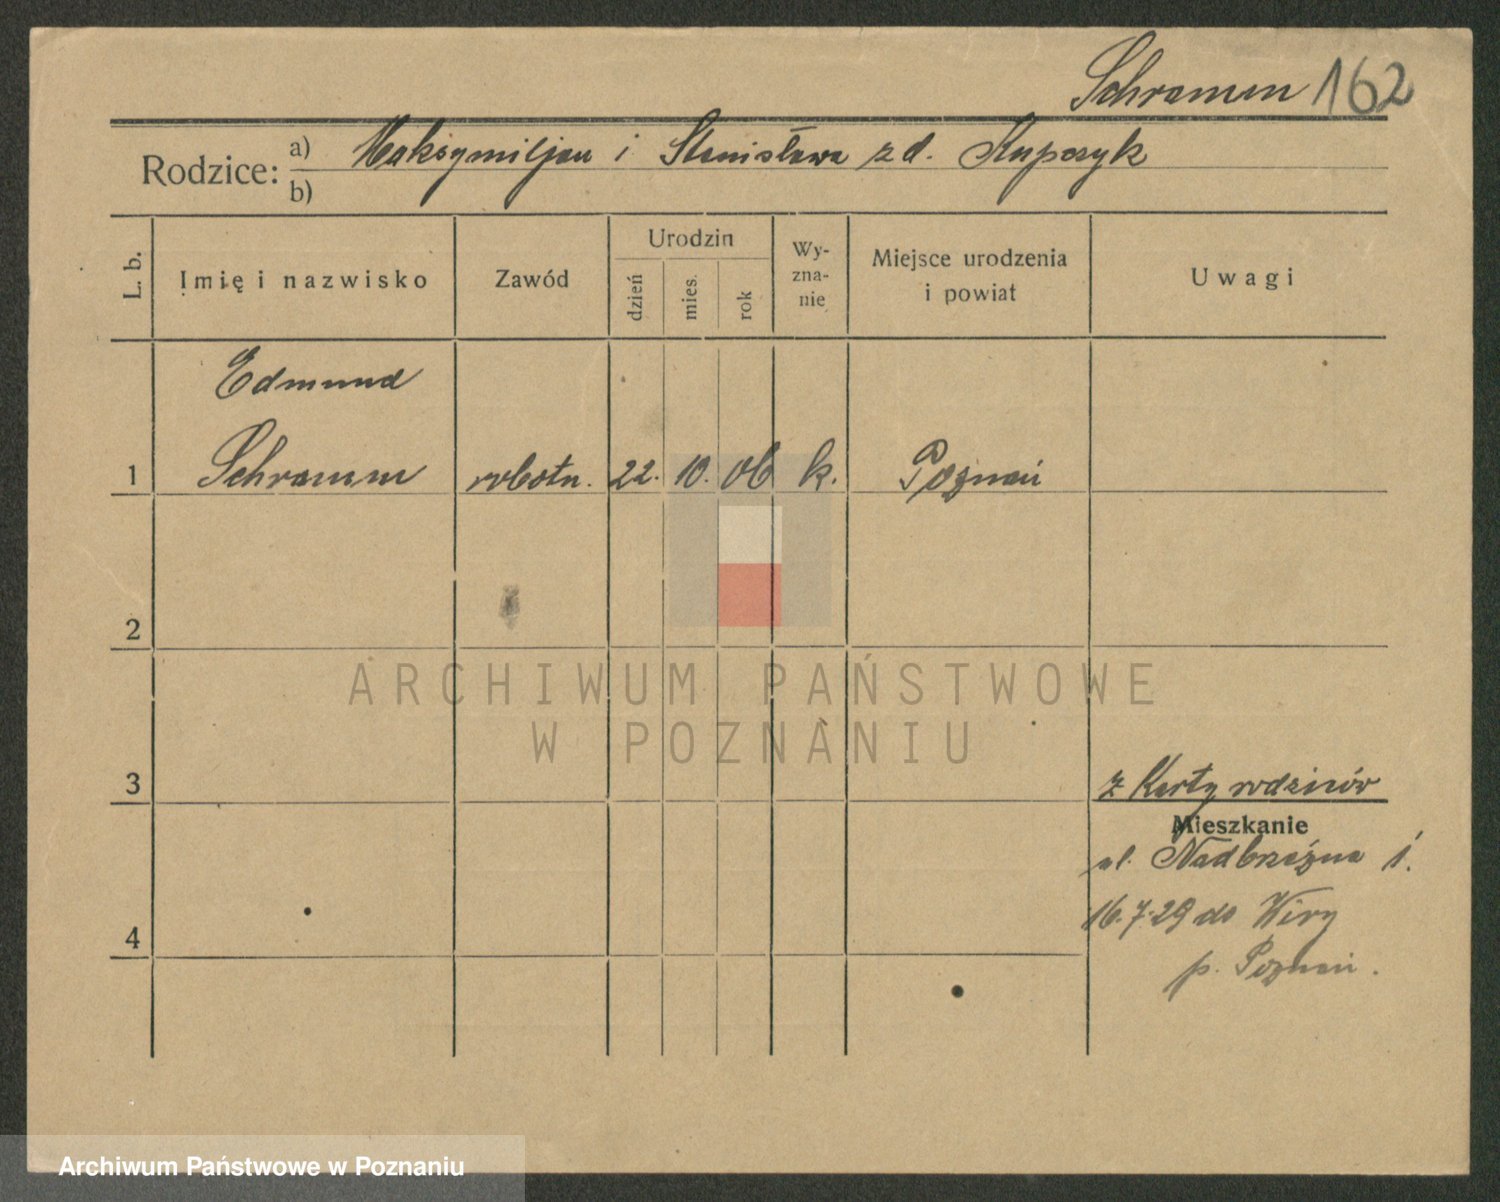 Schramm 162
Rodzice: a) Maksymiljan i Stanisława z d. Kupczyk
b)
L. b.
Imię i nazwisko
Zawód
Urodzin
dzień
mies.
rok
Wy-
zna-
nie
Miejsce urodzenia
i powiat
Uwagi
Edmund
1 Schramm robotn. 22. 10. 06 k. Poznań
2
ARCHIWUM PAŃSTWOWE
W POZNANIU
3
z Karty rodziców
Mieszkanie
ul. Nadbrzeżna 1.
16.7.29 do Wiry
4
p. Poznań.
Archiwum Państwowe w Poznaniu